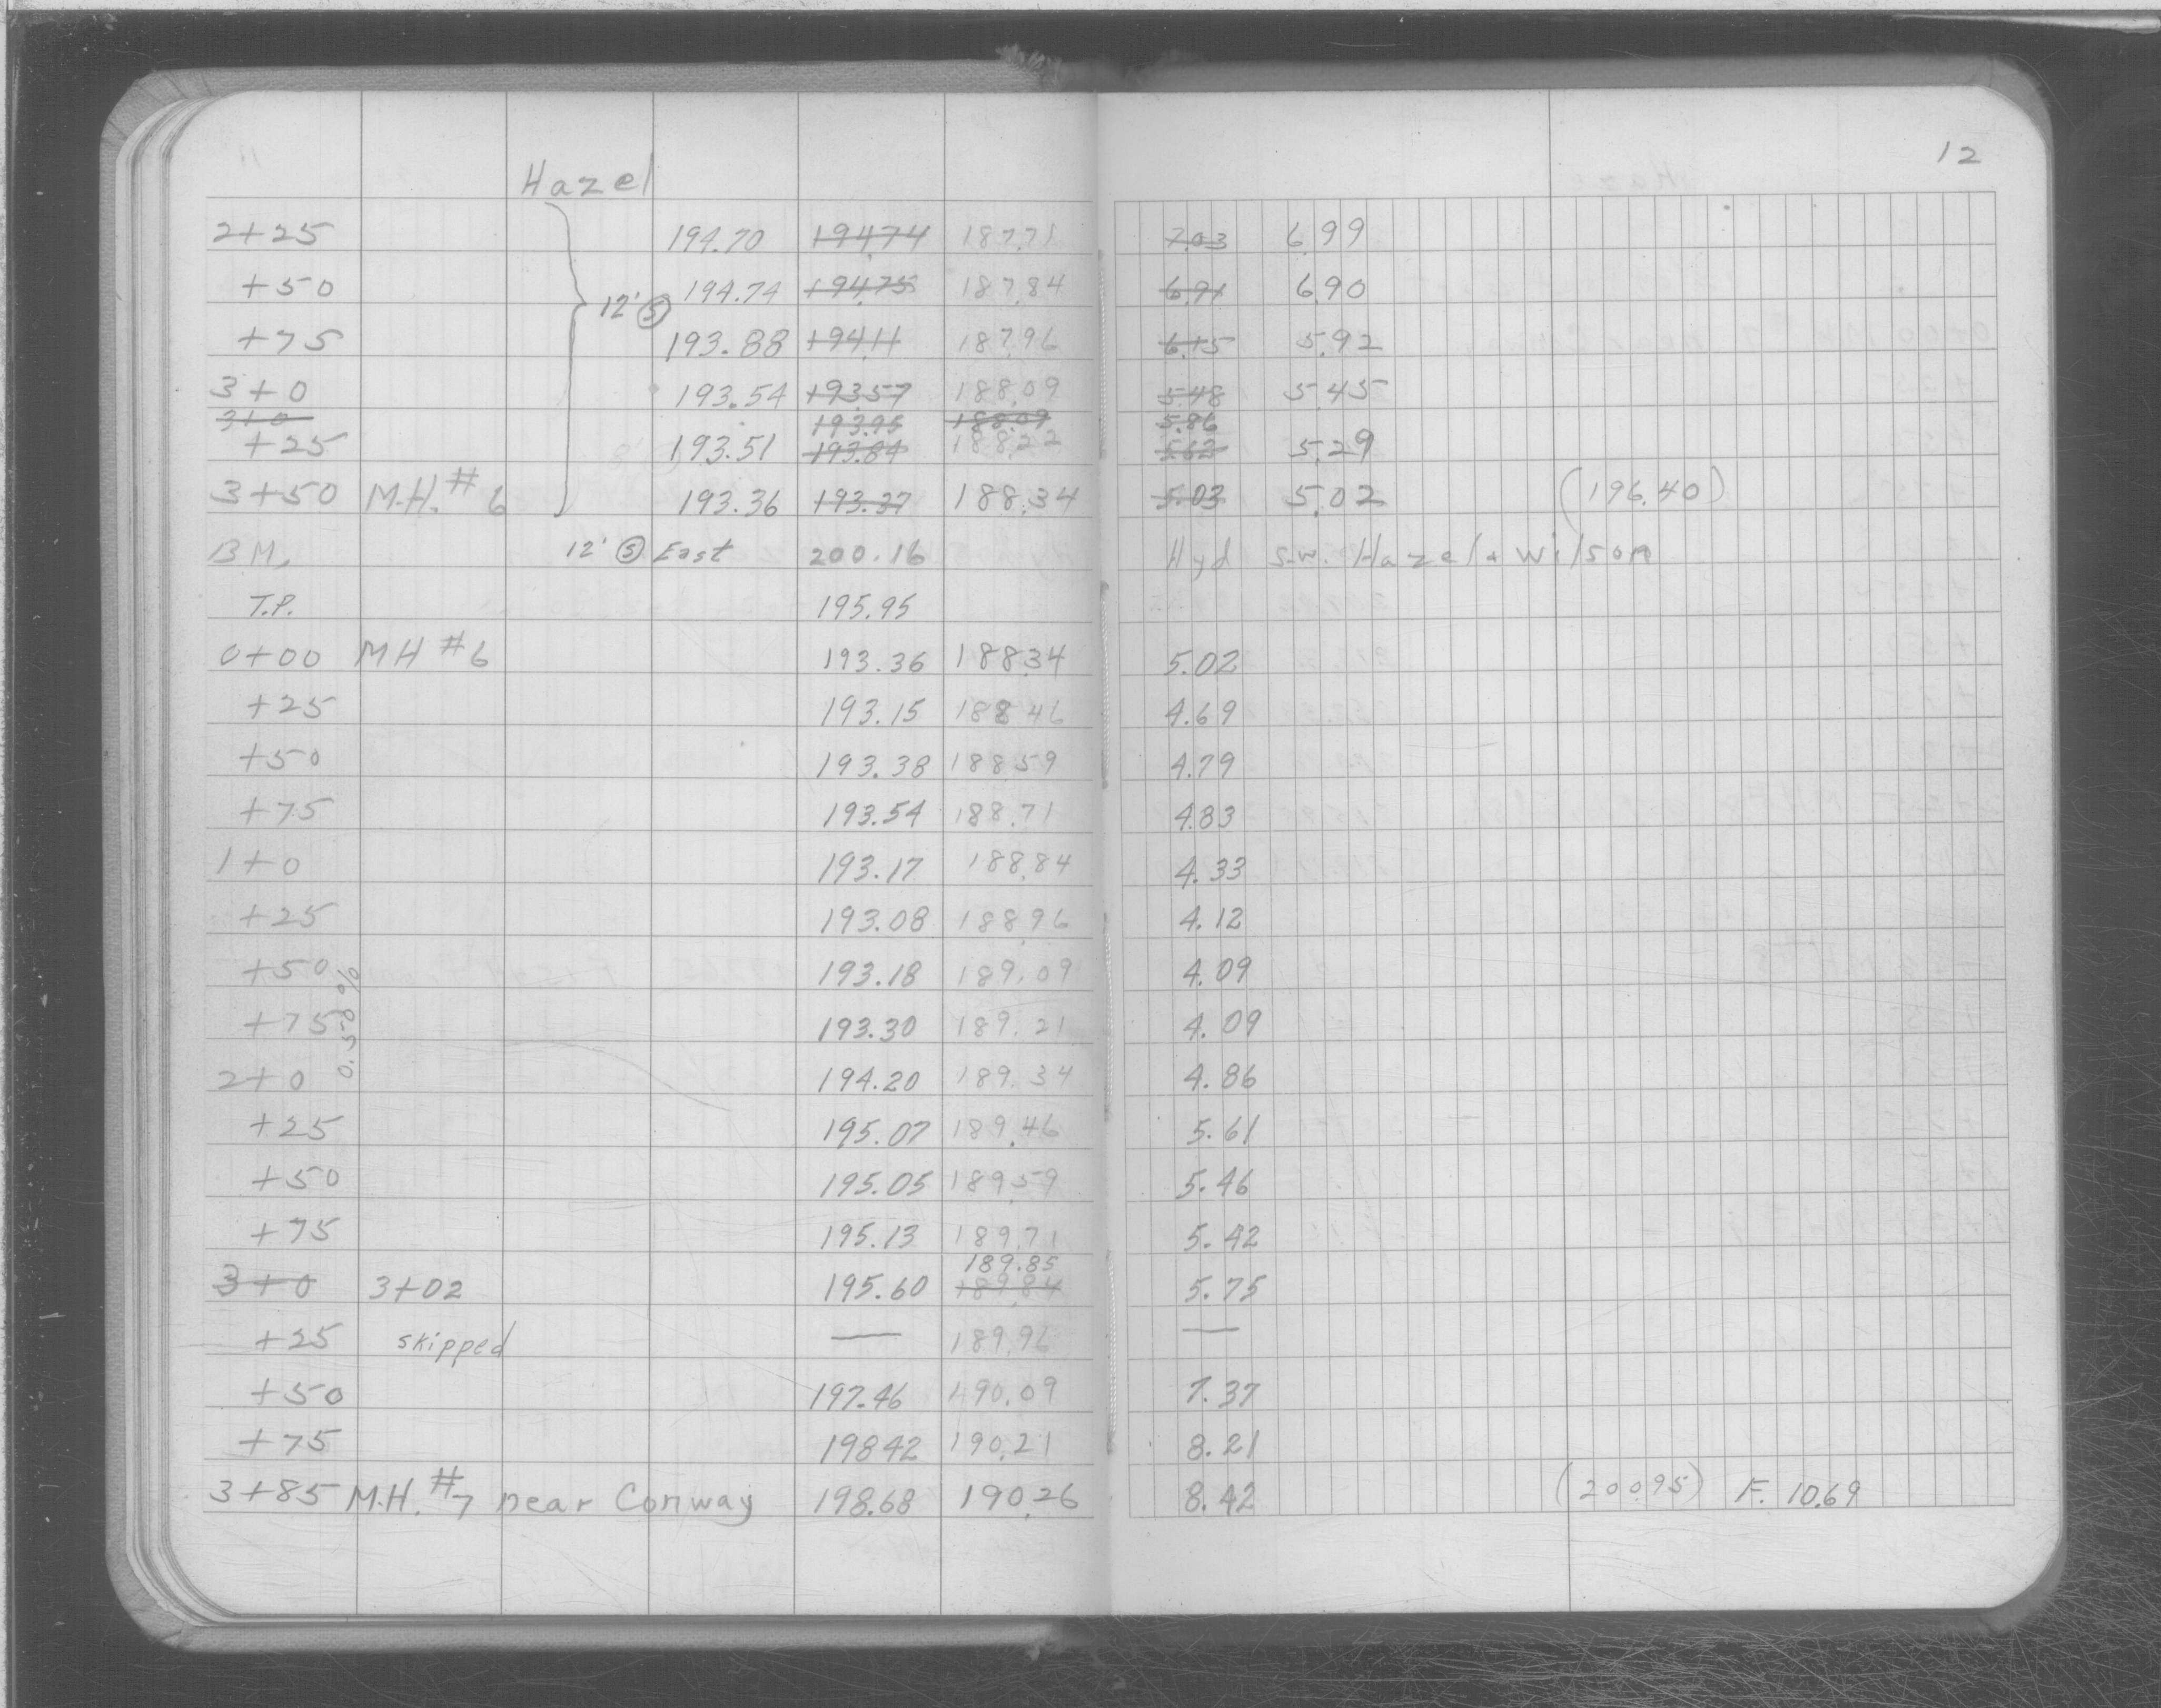 12
Hazel
2+25 194.70 194.74 187.71 7.03 6.99
+50 194.74 194.75 187.84 6.91 6.90
12' S
+75 193.88 194.11 187.96 6.15 5.92
3+0 193.54 193.57 188.09 5.48 5.45
3+0 193.95 188.09 5.86
+25 193.51 193.84 188.22 5.62 5.29
3+50 M.H. #6 193.36 193.37 188.34 5.03 5.02 (196.40)
B M. 12' S East 200.16 Hyd S.W. Hazel & Wilson
T.P. 195.95
0+00 MH #6 193.36 188.34 5.02
+25 193.15 188.46 4.69
+50 193.38 188.59 4.79
+75 193.54 188.71 4.83
1+0 193.17 188.84 4.33
+25 193.08 188.96 4.12
+50 193.18 189.09 4.09
+75 193.30 189.21 4.09
0.50%
2+0 194.20 189.34 4.86
+25 195.07 189.46 5.61
+50 195.05 189.59 5.46
+75 195.13 189.71 5.42
189.85
3+0 3+02 195.60 189.84 5.75
+25 skipped — 189.96 —
+50 197.46 190.09 7.37
+75 198 42 190.21 8.21
3+85 M.H. #7 near Conway 198.68 190.26 8.42 (200.95) F. 10.69